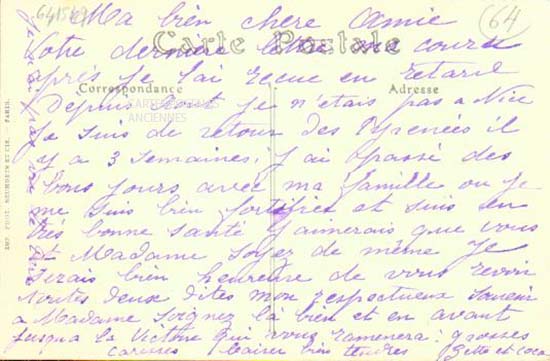 Ma bièn chère Amie
64
Carte Postale
Votre dernière lettre a couru
après je l'ai recue en retard
Correspondance
Adresse
Depuis Aout je n'étais pas a Nice
CARTES POSTALES
ANCIENNES
je suis de retour des Pyrenées il
y a 3 semaines, j'ai passé des
bons jours avec ma famille ou je
me suis bièn fortifiée et suis en
très bonne santé j'aimerais que vous
et Madame soyez de même je
serais bièn heureuse de vous revoir
toutes deux dites mon respectueux souvenir
a Madame Soignez la bièn et en avant
jusqua la Victoire qui vous ramenera; grosses
carèsses baiser bièn tendres
IMP. PHOT. NEURDEIN ET CIE. — PARIS.